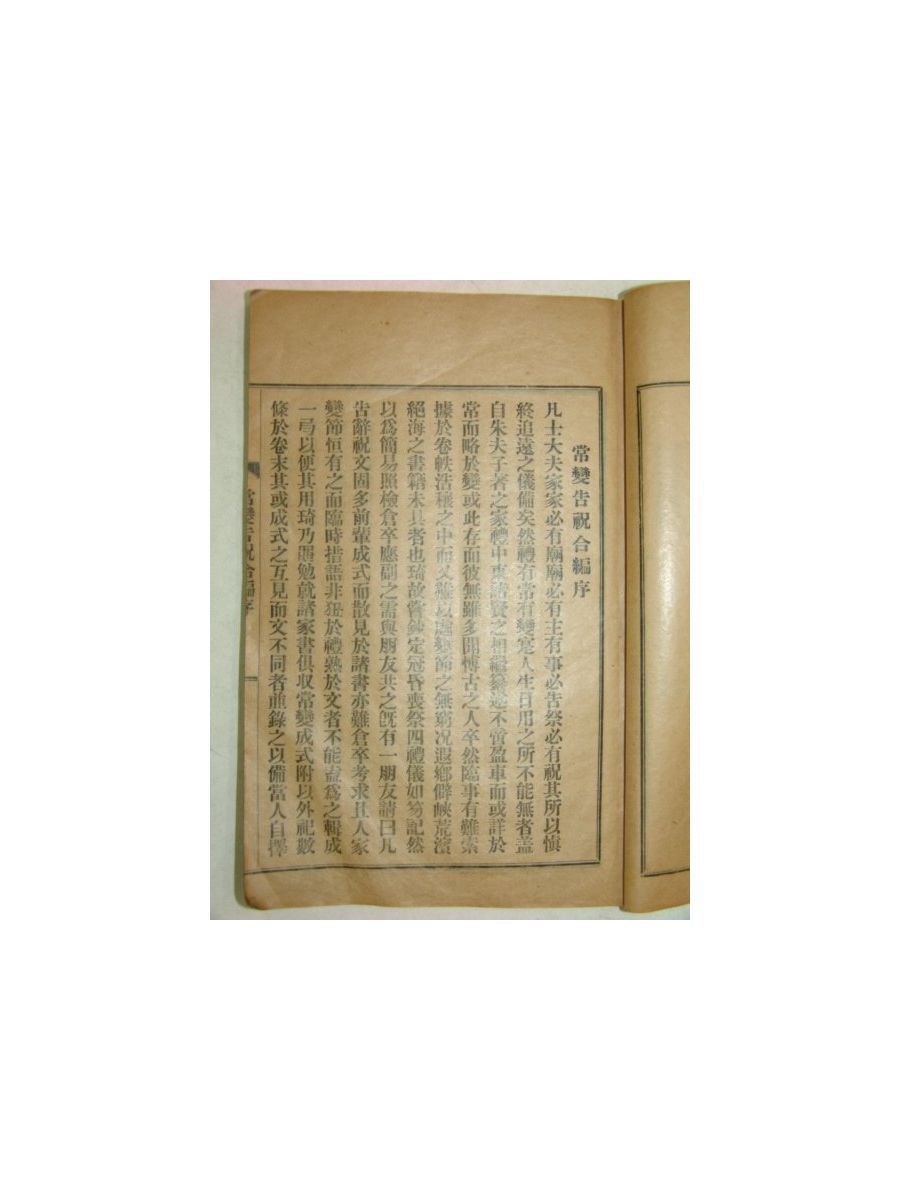 常變告祝合編序
凡士大夫家家必有廟廟必有主有事必告祭必有祝其所以愼
終追遠之儀備矣然禮有常有變寔人生日用之所不能無者盖
自朱夫子著之家禮中東諸賢之相繼纂述不啻盈車而或詳於
常而略於變或此存而彼無雖多聞博古之人卒然臨事有難索
據於卷帙浩穰之中而又難以處變節之無窮况遐鄕僻峽荒濱
絕海之書籍未具者也琦故嘗鈔定冠昏喪祭四禮儀如笏記然
以爲簡易照檢倉卒應副之需與朋友共之旣有一朋友請曰凡
告辭祝文固多前輩成式而散見於諸書亦難倉卒考求且人家
變節恒有之而臨時措語非 於禮熟於文者不能盍爲之輯成
一弓以便其用琦乃黽勉就諸家書俱収常變成式附以外祀數
條於卷末其或成式之互見而文不同者並錄之以備當人自擇
常變告祝合編序